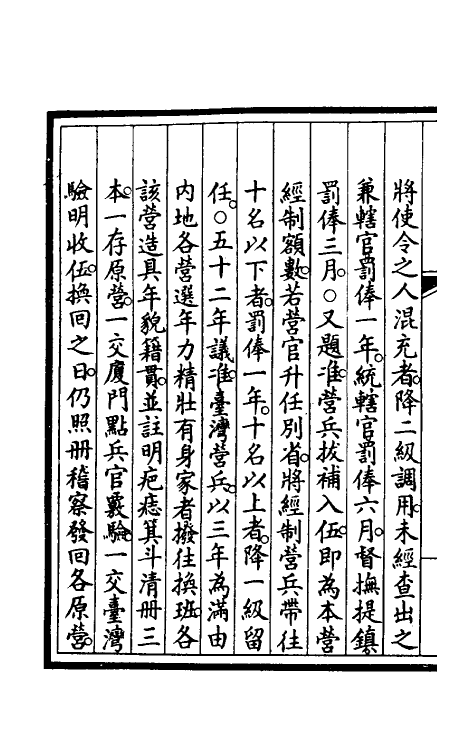 將使令之人混充者。降二級調用。未經查出之
兼轄官罰俸一年。統轄官罰俸六月。督撫提鎮
罰俸三月。○又題准營兵拔補入伍。即為本營
經制額數。若營官升任別省。將經制營兵帶往
十名以下者。罰俸一年。十名以上者。降一級留
任。○五十二年議准。臺灣營兵。以三年為滿。由
內地各營選年力精壯有身家者撥往換班。各
該營造具年貌籍貫。並註明疤痣箕斗清冊三
本。一存原營。一交廈門點兵官覈驗。一交臺灣
驗明收伍。換回之日。仍照冊稽察發回各原營。